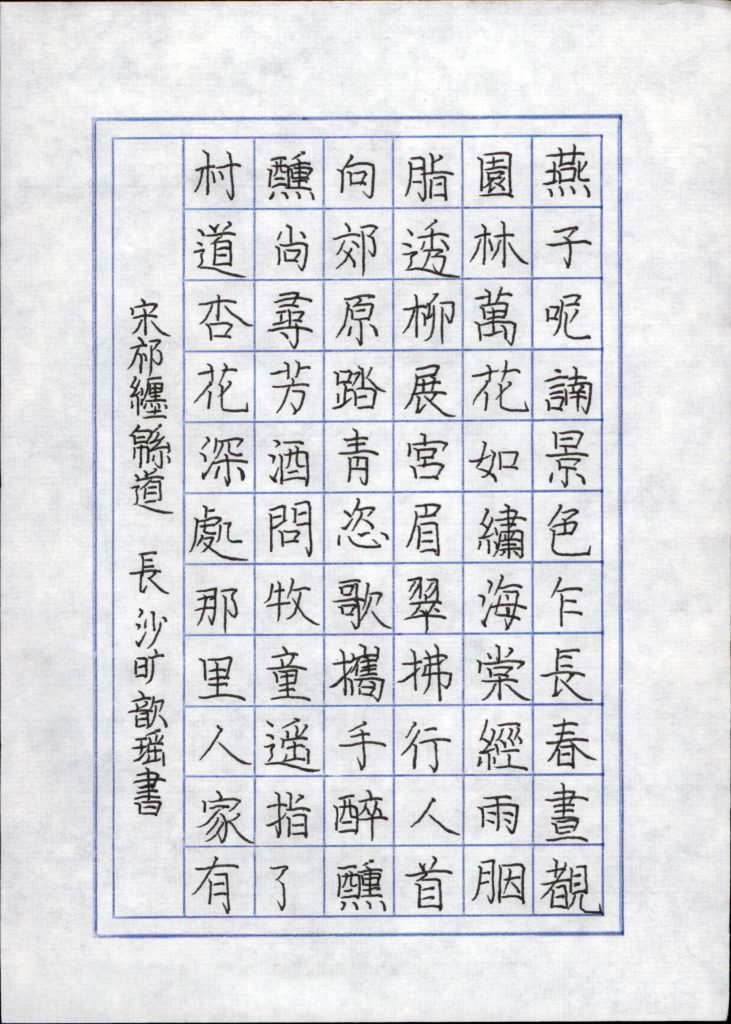 燕子呢諵景色乍長春晝覩
園林萬花如繡海棠經雨胭
脂透柳展宮眉翠拂行人首
向郊原踏青恣歌攜手醉醺
醺尚尋芳酒問牧童遥指了
村道杏花深處那里人家有
宋祁纏緜道 長沙旷歆瑶書